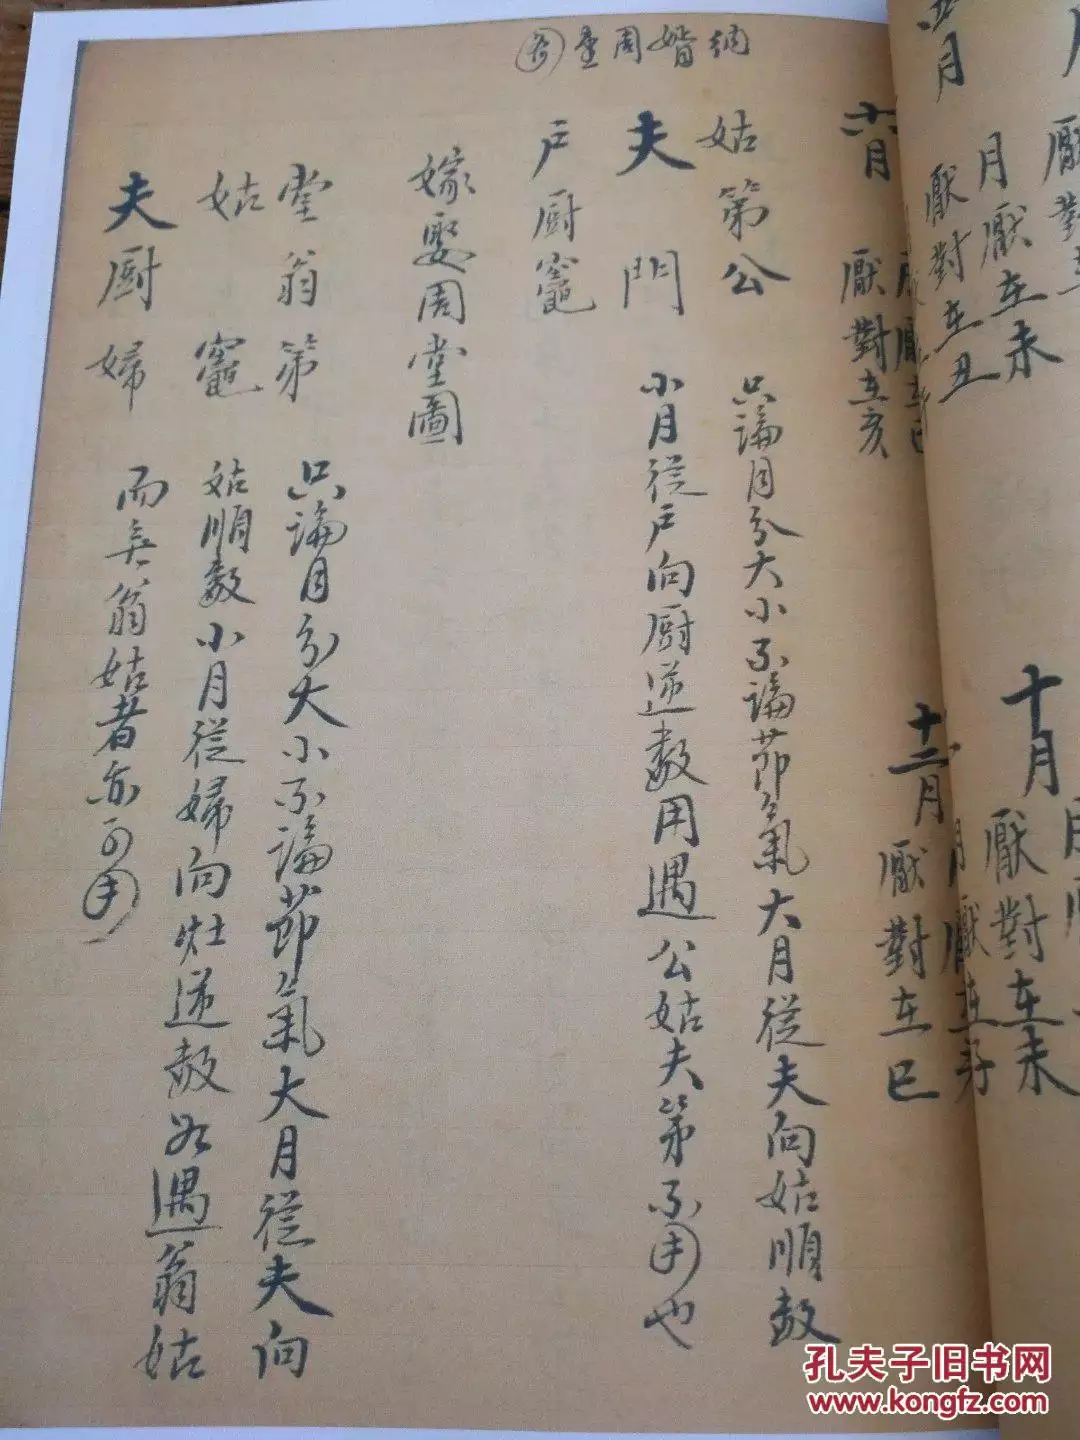 厭對在
月厭在未
五月
厭對在丑
十月
厭對在未
月厭在巳
六月
厭對在亥
月厭在子
十二月
厭對在巳
納婚周堂圖
姑第公
夫門
戶廚竈
只論月分大小不論節氣大月從夫向姑順數
小月從戶向廚逆數用遇公姑夫第不用也
嫁娶周堂圖
堂翁第
姑竈
夫廚婦
只論月分大小不論節氣大月從夫向
姑順數小月從婦向灶逆數如遇翁姑
而無翁姑者亦可用
孔夫子旧书网
www.kongfz.com